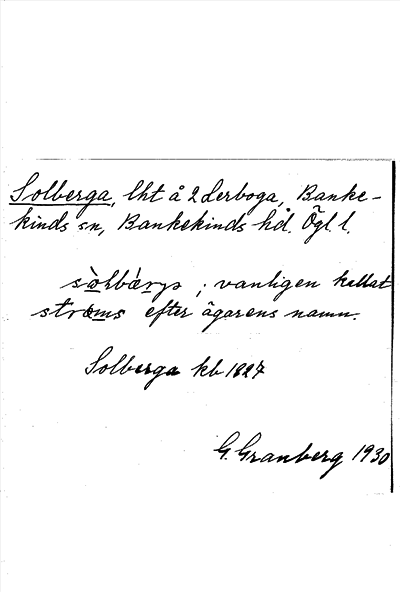 Solberga, lht å 2 Lerboga, Banke-
kinds sn, Bankekinds hd. Ögl. l.
sòlbárya ; vanligen kallat
ströms efter ägarens namn.
Solberga kb 1827
G. Granberg 1930